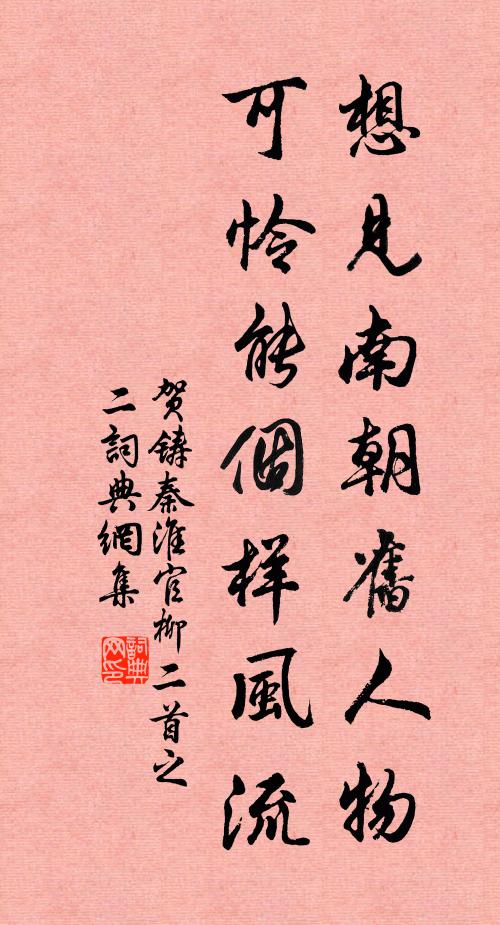 想見南朝舊人物
可怜能個样風流
贺鑄秦淮官柳二首之
二詞典網集
詞典网印